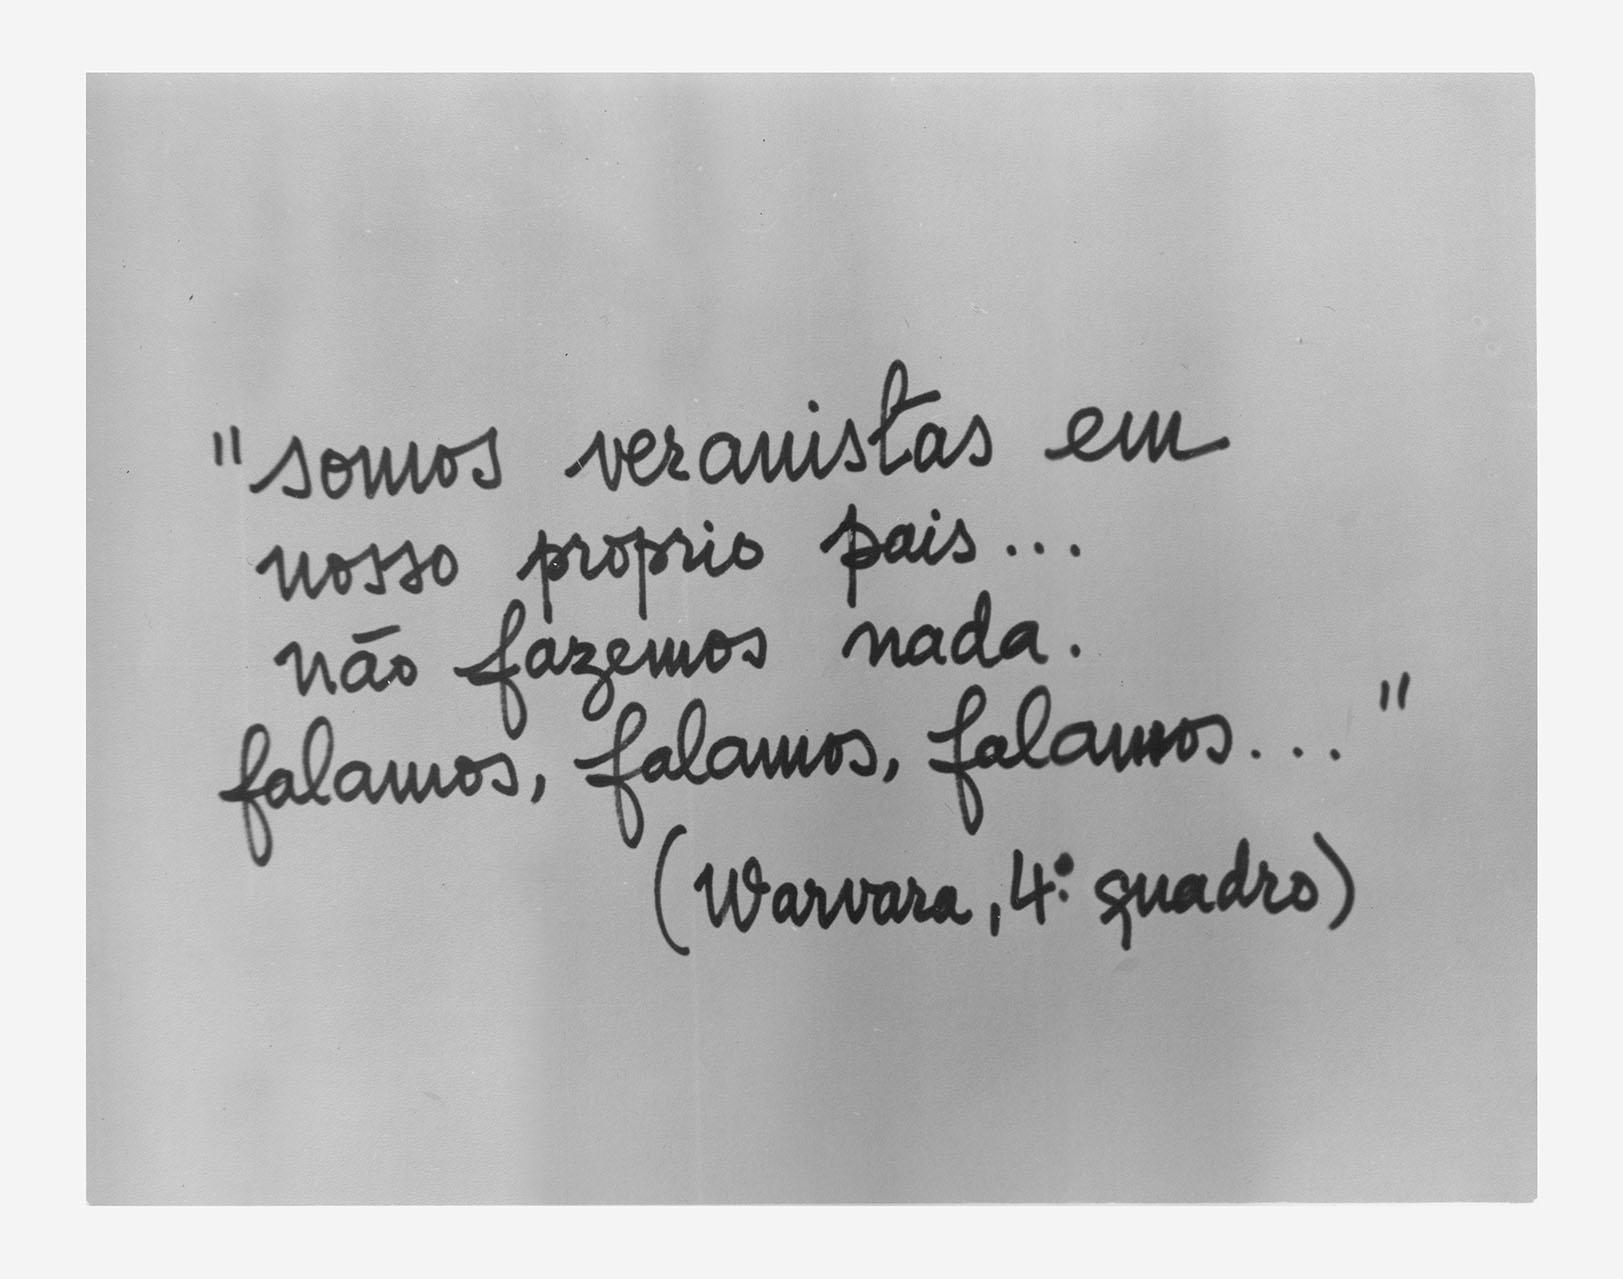 "somos veranistas em
nosso proprio pais...
não fazemos nada.
falamos, falamos, falamos..."
(Warvara, 4º quadro)